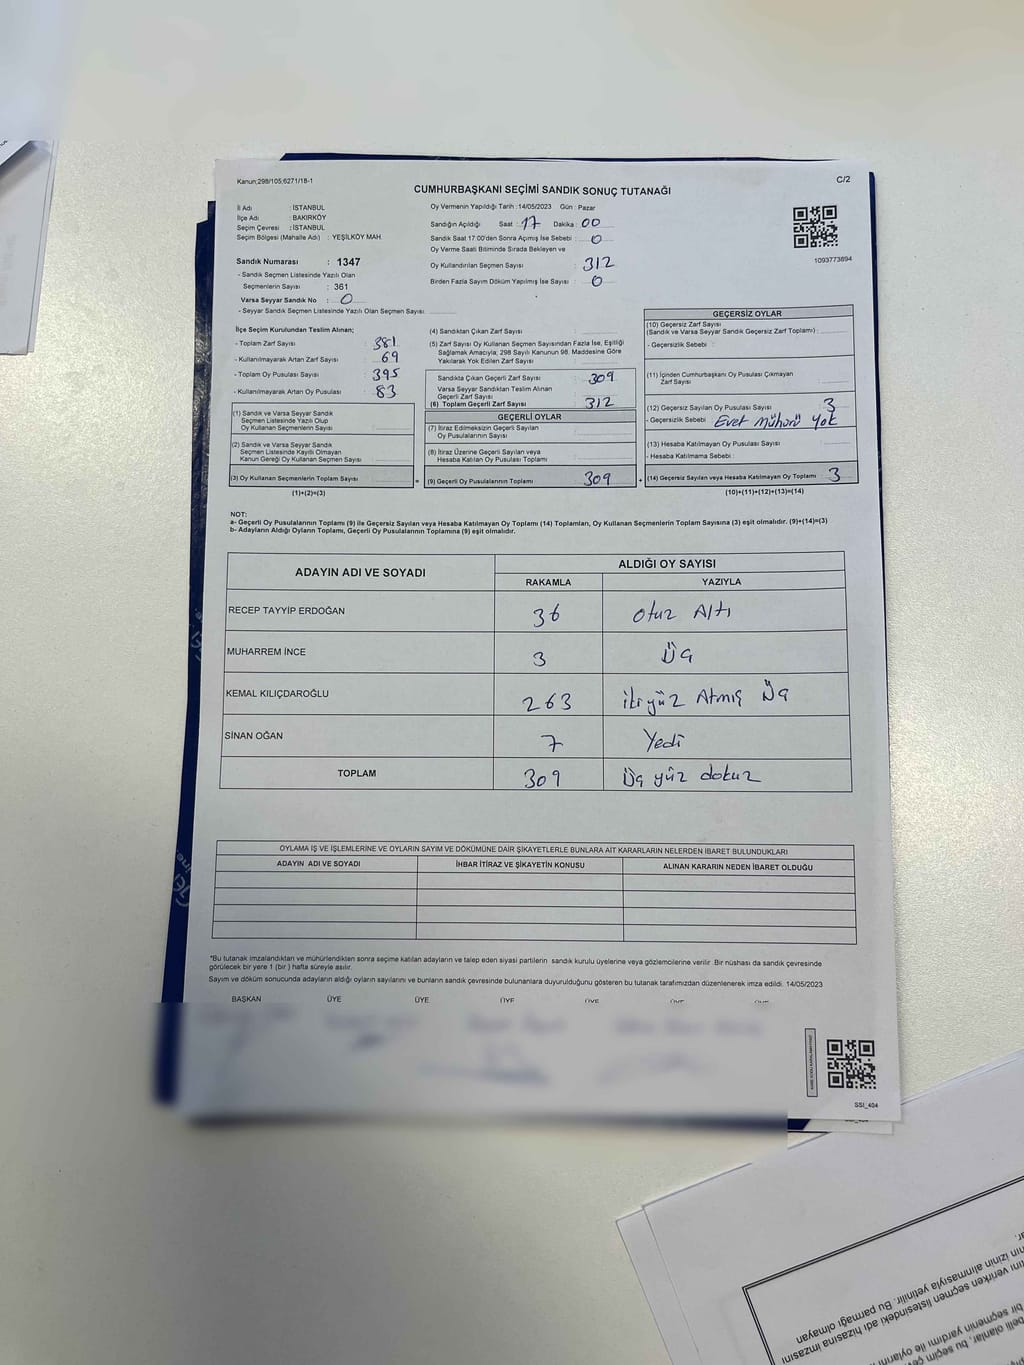 Kanun;298/105;6271/18-1
C/2
CUMHURBAŞKANI SEÇİMİ SANDIK SONUÇ TUTANAĞI
İl Adı : İSTANBUL
İlçe Adı : BAKIRKÖY
Seçim Çevresi : İSTANBUL
Seçim Bölgesi (Mahalle Adı) : YEŞİLKÖY MAH.
Sandık Numarası : 1347
- Sandık Seçmen Listesinde Yazılı Olan
Seçmenlerin Sayısı : 361
Varsa Seyyar Sandık No : 0
- Seyyar Sandık Seçmen Listesinde Yazılı Olan Seçmen Sayısı :
Oy Vermenin Yapıldığı Tarih : 14/05/2023 Gün : Pazar
Sandığın Açıldığı Saat : 17 Dakika : 00
Sandık Saat 17:00'den Sonra Açımış İse Sebebi : 0
Oy Verme Saati Bitiminde Sırada Bekleyen ve
Oy Kullandırılan Seçmen Sayısı : 312
Birden Fazla Sayım Döküm Yapılmış İse Sayısı : 0
1093773894
İlçe Seçim Kurulundan Teslim Alınan;
- Toplam Zarf Sayısı : 381
- Kullanılmayarak Artan Zarf Sayısı : 69
- Toplam Oy Pusulası Sayısı : 395
- Kullanılmayarak Artan Oy Pusulası : 83
(1) Sandık ve Varsa Seyyar Sandık
Seçmen Listesinde Yazılı Olup
Oy Kullanan Seçmenlerin Sayısı :
(2) Sandık ve Varsa Seyyar Sandık
Seçmen Listesinde Kayıtlı Olmayan
Kanun Gereği Oy Kullanan Seçmen Sayısı :
(3) Oy Kullanan Seçmenlerin Toplam Sayısı :
(1)+(2)=(3)
=
(4) Sandıktan Çıkan Zarf Sayısı :
(5) Zarf Sayısı Oy Kullanan Seçmen Sayısından Fazla İse, Eşitliği
Sağlamak Amacıyla, 298 Sayılı Kanunun 98. Maddesine Göre
Yakılarak Yok Edilen Zarf Sayısı :
Sandıkta Çıkan Geçerli Zarf Sayısı : 309
Varsa Seyyar Sandıktan Teslim Alınan
Geçerli Zarf Sayısı :
(6) Toplam Geçerli Zarf Sayısı : 312
GEÇERLİ OYLAR
(7) İtiraz Edilmeksizin Geçerli Sayılan
Oy Pusulalarının Sayısı :
(8) İtiraz Üzerine Geçerli Sayılan veya
Hesaba Katılan Oy Pusulası Toplamı :
(9) Geçerli Oy Pusulalarının Toplamı : 309
+
GEÇERSİZ OYLAR
(10) Geçersiz Zarf Sayısı
(Sandık ve Varsa Seyyar Sandık Geçersiz Zarf Toplamı) :
- Geçersizlik Sebebi :
(11) İçinden Cumhurbaşkanı Oy Pusulası Çıkmayan
Zarf Sayısı :
(12) Geçersiz Sayılan Oy Pusulası Sayısı : 3
- Geçersizlik Sebebi : Evet Mühürü Yok
(13) Hesaba Katılmayan Oy Pusulası Sayısı :
- Hesaba Katılmama Sebebi :
(14) Geçersiz Sayılan veya Hesaba Katılmayan Oy Toplamı : 3
(10)+(11)+(12)+(13)=(14)
NOT:
a- Geçerli Oy Pusulalarının Toplamı (9) ile Geçersiz Sayılan veya Hesaba Katılmayan Oy Toplamı (14) Toplamları, Oy Kullanan Seçmenlerin Toplam Sayısına (3) eşit olmalıdır. (9)+(14)=(3)
b- Adayların Aldığı Oyların Toplamı, Geçerli Oy Pusulalarının Toplamına (9) eşit olmalıdır.
ADAYIN ADI VE SOYADI
ALDIĞI OY SAYISI
RAKAMLA YAZIYLA
RECEP TAYYİP ERDOĞAN 36 Otuz Altı
MUHARREM İNCE 3 Üç
KEMAL KILIÇDAROĞLU 263 İkiyüz Atmış Üç
SİNAN OĞAN 7 Yedi
TOPLAM 309 Üç yüz dokuz
OYLAMA İŞ VE İŞLEMLERİNE VE OYLARIN SAYIM VE DÖKÜMÜNE DAİR ŞİKAYETLERLE BUNLARA AİT KARARLARIN NELERDEN İBARET BULUNDUKLARI
ADAYIN ADI VE SOYADI İHBAR İTİRAZ VE ŞİKAYETİN KONUSU ALINAN KARARIN NEDEN İBARET OLDUĞU
*Bu tutanak imzalandıktan ve mühürlendikten sonra seçime katılan adayların ve talep eden siyasi partilerin sandık kurulu üyelerine veya gözlemcilerine verilir. Bir nüshası da sandık çevresinde
görülecek bir yere 1 (bir) hafta süreyle asılır.
Sayım ve döküm sonucunda adayların aldığı oyların sayılarını ve bunların sandık çevresinde bulunanlara duyurulduğunu gösteren bu tutanak tarafımızdan düzenlenerek imza edildi. 14/05/2023
BAŞKAN ÜYE ÜYE ÜYE ÜYE ÜYE ÜYE
SSI_404